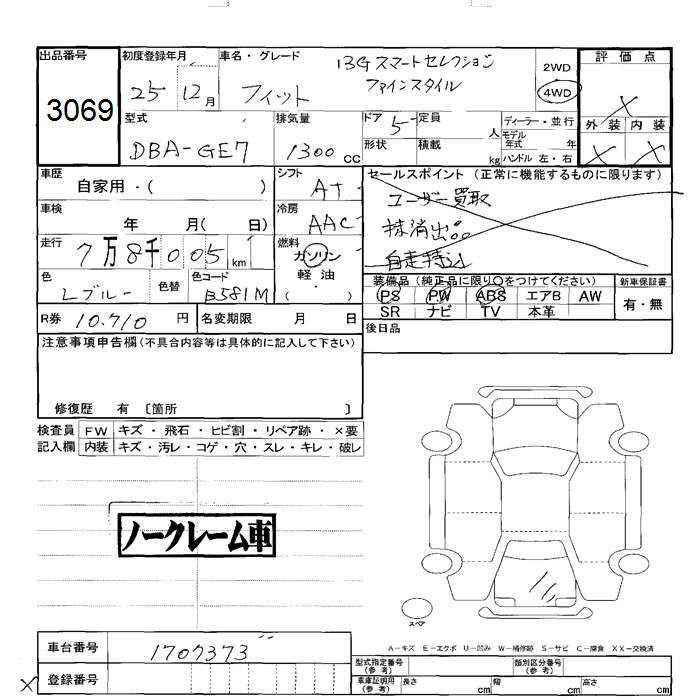 出品番号
3069
初度登録年月
25 12月
車名・グレード
13G スマートセレクション
フィット ファインスタイル
2WD
4WD
評価点
X
外装 内装
X X
型式
DBA-GE7
排気量
1300cc
ドア 5
定員 人
形状
積載 kg
ディーラー・並行
モデル年式 年
ハンドル 左・右
車歴
自家用・( )
シフト
AT
セールスポイント (正常に機能するものに限ります)
ユーザー買取
抹消出
自走持込
車検
年 月( 日)
冷房
AAC
走行
7万8千005km
燃料
ガソリン
軽油・
( )
色
Lブルー
色替
色コード
B581M
装備品 (純正品に限り○をつけてください)
PS PW ABS エアB AW
SR ナビ TV 本革
新車保証書
有・無
R券 10.710 円
名変期限 月 日
後日品
注意事項申告欄(不具合内容等は具体的に記入して下さい)
修復歴 有 〔箇所 〕
検査員
記入欄
FW キズ・飛石・ヒビ割・リペア跡・×要
内装 キズ・汚レ・コゲ・穴・スレ・キレ・破レ
ノークレーム車
スペア
A-キズ E-エクボ U-凹み W-補修跡 S-サビ C-腐食 XX-交換済
車台番号
1707373
登録番号
X
型式指定番号
(参考)
類別区分番号
(参考)
車庫証明用
(参考)
長さ cm
幅 cm
高さ cm